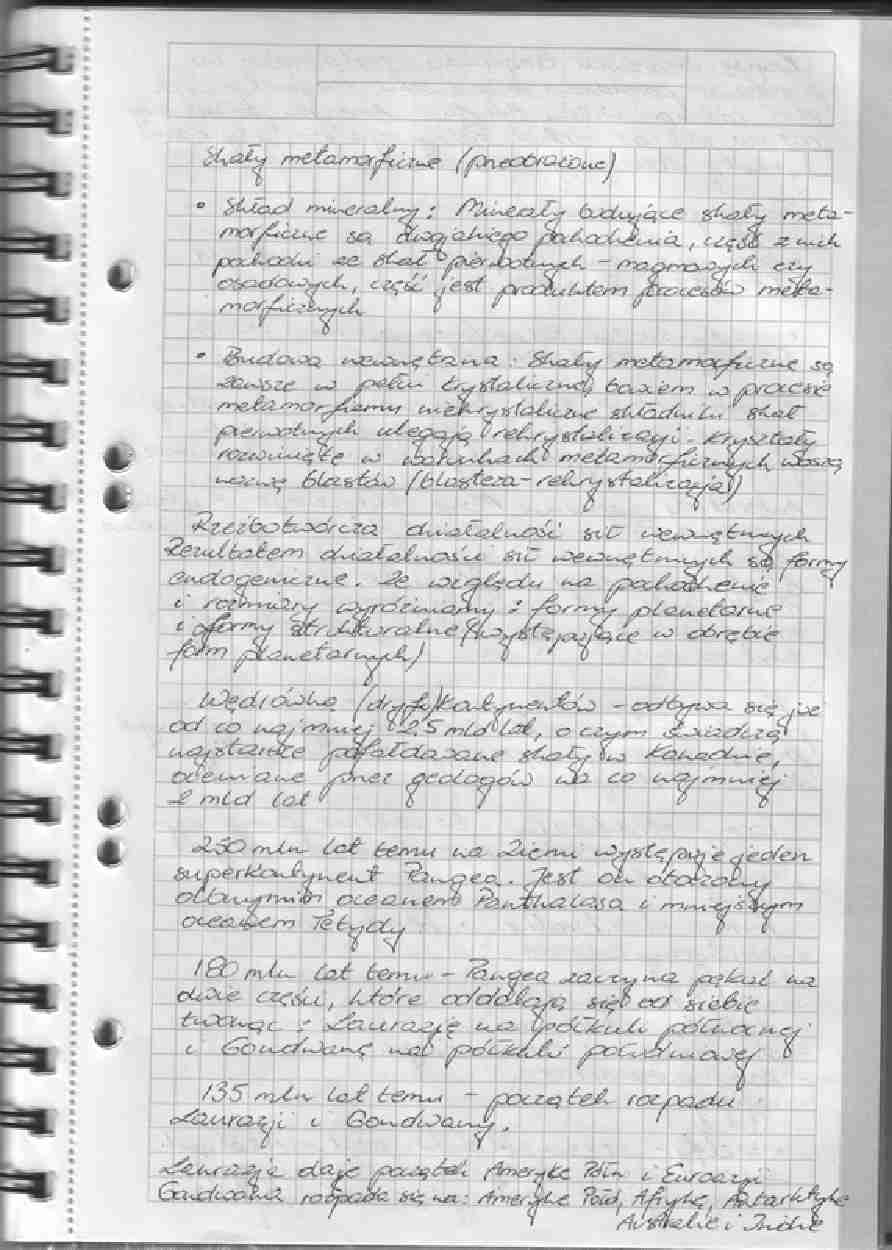 Skały metamorficzne (przeobrażone)
• Skład mineralny: Minerały budujące skały meta-
morficzne są dwojakiego pochodzenia, część z nich
pochodzi ze skał pierwotnych - magmowych czy
osadowych, część jest produktem procesów meta-
morficznych
• Budowa wewnętrzna: Skały metamorficzne są
zawsze w pełni krystaliczne, bowiem w procesie
metamorfizmu niekrystaliczne składniki skał
pierwotnych ulegają rekrystalizacji. Kryształy
rozwinięte w warunkach metamorficznych noszą
nazwę blastów (blasteza - rekrystalizacja)
Rzeźbotwórcza działalność sił wewnętrznych
Rezultatem działalności sił wewnętrznych są formy
endogeniczne. Ze względu na pochodzenie
i rozmiary wyróżniamy: formy planetarne
i formy strukturalne (występujące w obrębie
form planetarnych)
Wędrówka (dryf) kontynentów - odbywa się już
od co najmniej 2,5 mld lat, o czym świadczą
najstarsze pofałdowane skały w Kanadzie,
oceniane przez geologów na co najmniej
2 mld lat
250 mln lat temu na Ziemi występuje jeden
superkontynent Pangea. Jest on otoczony
olbrzymim oceanem Panthalasa i mniejszym
oceanem Tetydy
180 mln lat temu - Pangea zaczyna pękać na
dwie części, które oddalają się od siebie
tworząc: Laurazję na półkuli północnej
i Gondwanę na półkuli południowej
135 mln lat temu - początek rozpadu
Laurazji i Gondwany.
Laurazja daje początek Ameryke Płn i Eurazji
Gondwana rozpada się na: Amerykę Połd, Afrykę, Antarktykę
Australię i Indie